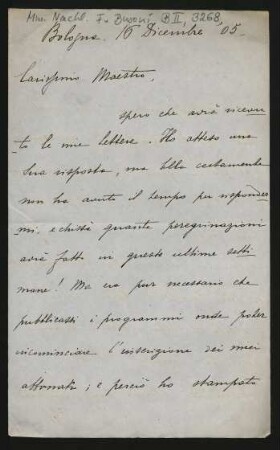 Mus. Nachl. F. Busoni B II, 3268
Bologna, 15 Dicembre '05.
Carissimo Maestro,
spero che avrà ricevu-
to le mie lettere. Ho atteso una
Sua risposta, ma Ella certamente
non ha avuto il tempo per risponder-
mi. e chissà quante peregrinazioni
avrà fatto in queste ultime setti-
mane! Ma era pur necessario che
pubblicassi i programmi onde poter
ricominciare l'inscrizione dei miei
abbonati; e perciò ho stampato